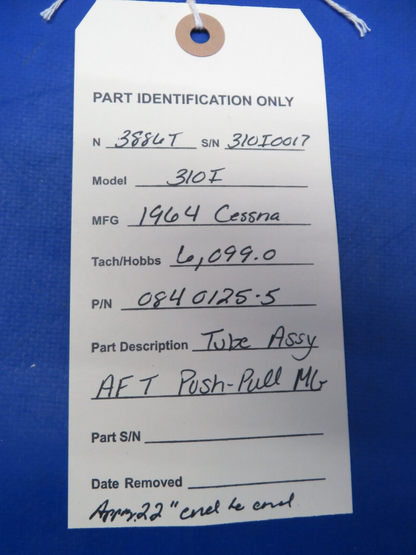 PART IDENTIFICATION ONLY
N 3886T S/N 310I0017
Model 310I
MFG 1964 Cessna
Tach/Hobbs 6,099.0
P/N 0840125-5
Part Description Tube Assy
AFT Push-Pull MG
Part S/N
Date Removed
Approx. 22" end to end